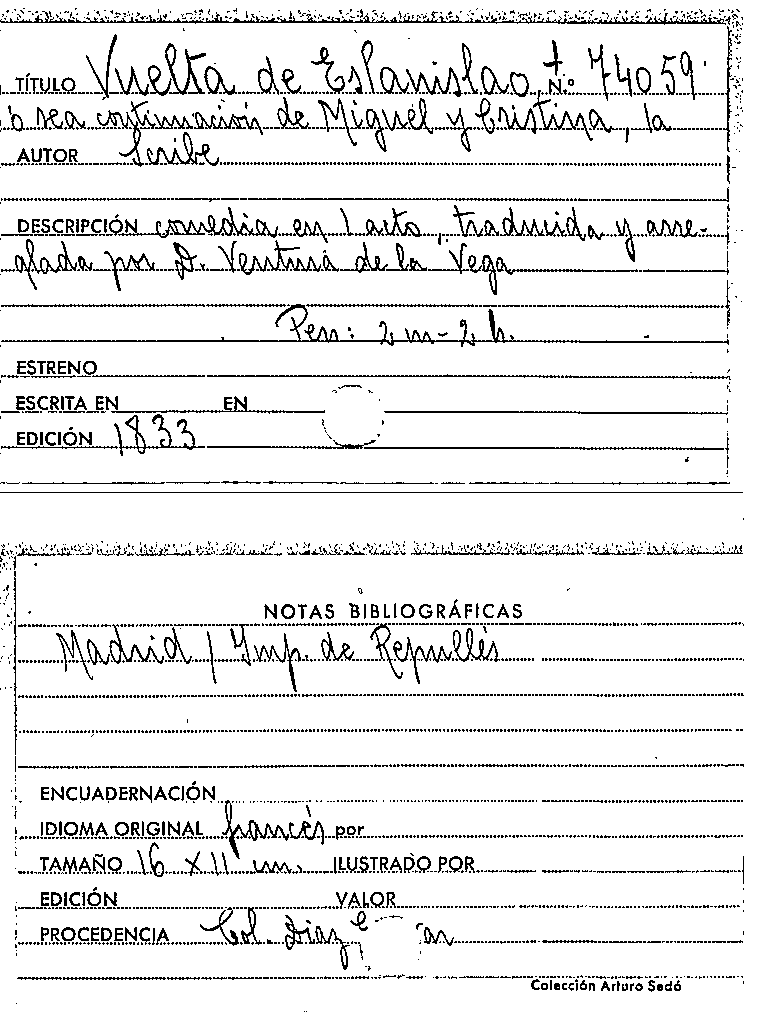 TÍTULO Vuelta de Eslanislao, t N.º 74059
ó sea continuación de Miguel y Cristina, la
AUTOR Scribe
DESCRIPCIÓN comedia en 1 acto, traducida y arre-
glada por D. Ventura de la Vega
Pers: 2 m - 2 h.
ESTRENO
ESCRITA EN EN
EDICIÓN 1833
NOTAS BIBLIOGRÁFICAS
Madrid / Imp. de Repullés
ENCUADERNACIÓN
IDIOMA ORIGINAL francés por
TAMAÑO 16 x 11 cm. ILUSTRADO POR
EDICIÓN VALOR
PROCEDENCIA Col. Díaz
Colección Arturo Sedó